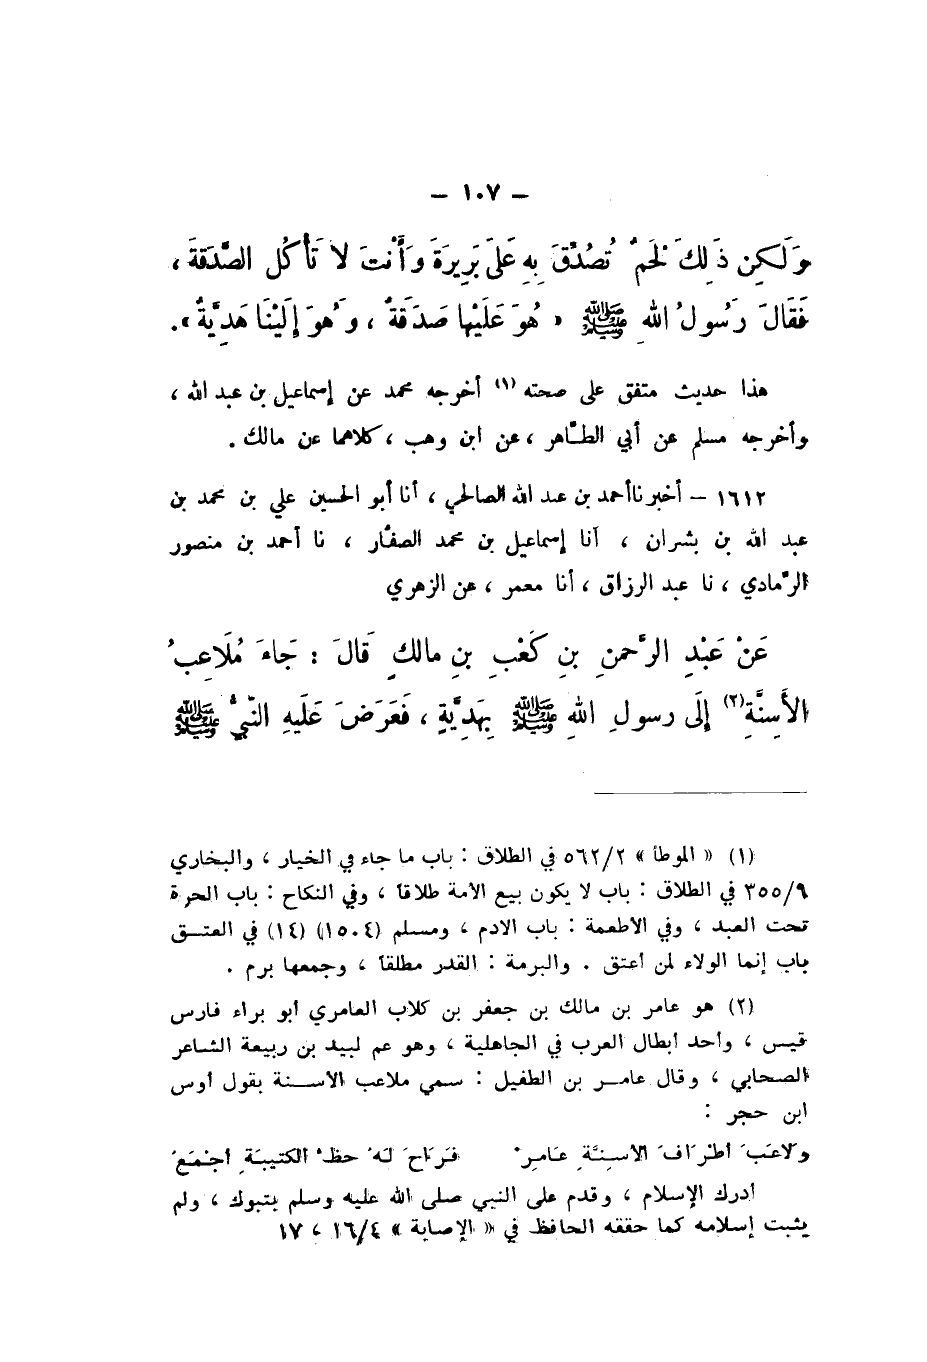 – ١٠٧ –
وَلَكِن ذَلِكَ لَحْمٌ تُصُدِّقَ بِهِ عَلَى بَرِيرَةَ وَأَنْتَ لَا تَأْكُل الصَّدَقَةَ ،
فَقَالَ رَسُولُ اللهِ ﷺ « هُوَ عَلَيْهَا صَدَقَةٌ ، وَهُوَ إِلَيْنَا هَدِيَّةٌ » .
هذا حديث متفق على صحته (١) أخرجه محمد عن إسماعيل بن عبد الله ،
وأخرجه مسلم عن أبي الطَّاهر ، عن ابن وهب ، كلاهما عن مالك .
١٦١٢ – أخبرنا أحمد بن عبد الله الصالحي ، أنا أبو الحسين علي بن محمد بن
عبد الله بن بشران ، أنا إسماعيل بن محمد الصفَّار ، نا أحمد بن منصور
الرَّمادي ، نا عبد الرزاق ، أنا معمر ، عن الزهري
عَنْ عَبْدِ الرَّحمنِ بنِ كَعْبِ بنِ مالكٍ قَالَ : جَاءَ مُلَاعِبُ
الأَسِنَّةِ (٢) إِلَى رسولِ اللهِ ﷺ بِهَدِيَّةٍ ، فَعَرَضَ عَلَيهِ النَّبيُّ ﷺ
(١) « الموطأ » ٥٦٢/٢ في الطلاق : باب ما جاء في الخيار ، والبخاري
٣٥٥/٩ في الطلاق : باب لا يكون بيع الأمة طلاقاً ، وفي النكاح : باب الحرة
تحت العبد ، وفي الأطعمة : باب الأدم ، ومسلم (١٥٠٤) (١٤) في العتق
باب إنما الولاء لمن أعتق . والبرمة : القدر مطلقاً ، وجمعها برم .
(٢) هو عامر بن مالك بن جعفر بن كلاب العامري أبو براء فارس
قيس ، وأحد أبطال العرب في الجاهلية ، وهو عم لبيد بن ربيعة الشاعر
الصحابي ، وقال عامر بن الطفيل : سمي ملاعب الأسنة بقول أوس
ابن حجر :
ولاعَبَ أطْرَافَ الأسِنَّةِ عَامِرٌ فَرَاحَ لَهُ حَظُّ الكتيبَةِ أجْمَعُ
أدرك الإسلام ، وقدم على النبي صلى الله عليه وسلم بتبوك ، ولم
يثبت إسلامه كما حققه الحافظ في « الإصابة » ١٦/٤ ، ١٧